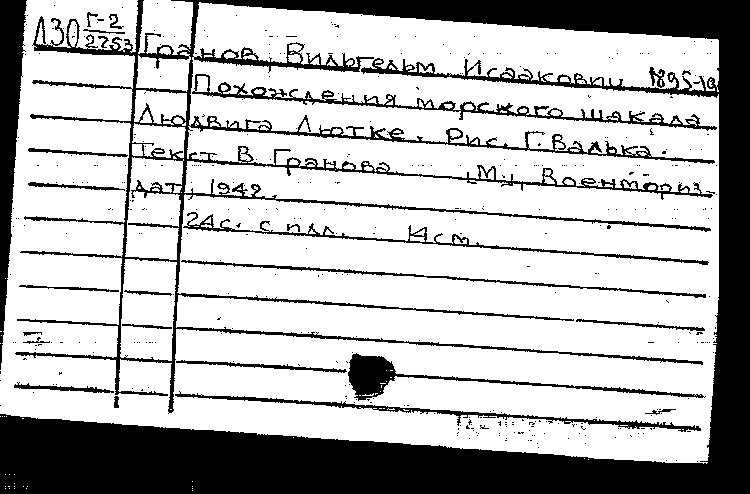 Л30 Г-2
2753
Гранов, Вильгельм Исаакович 1895-19
Похождения морского шакала
Людвига Лютке. Рис. Г. Валька.
Текст В. Гранова. [М.], Военмориз-
дат, 1942.
24с. с илл. 14 см.